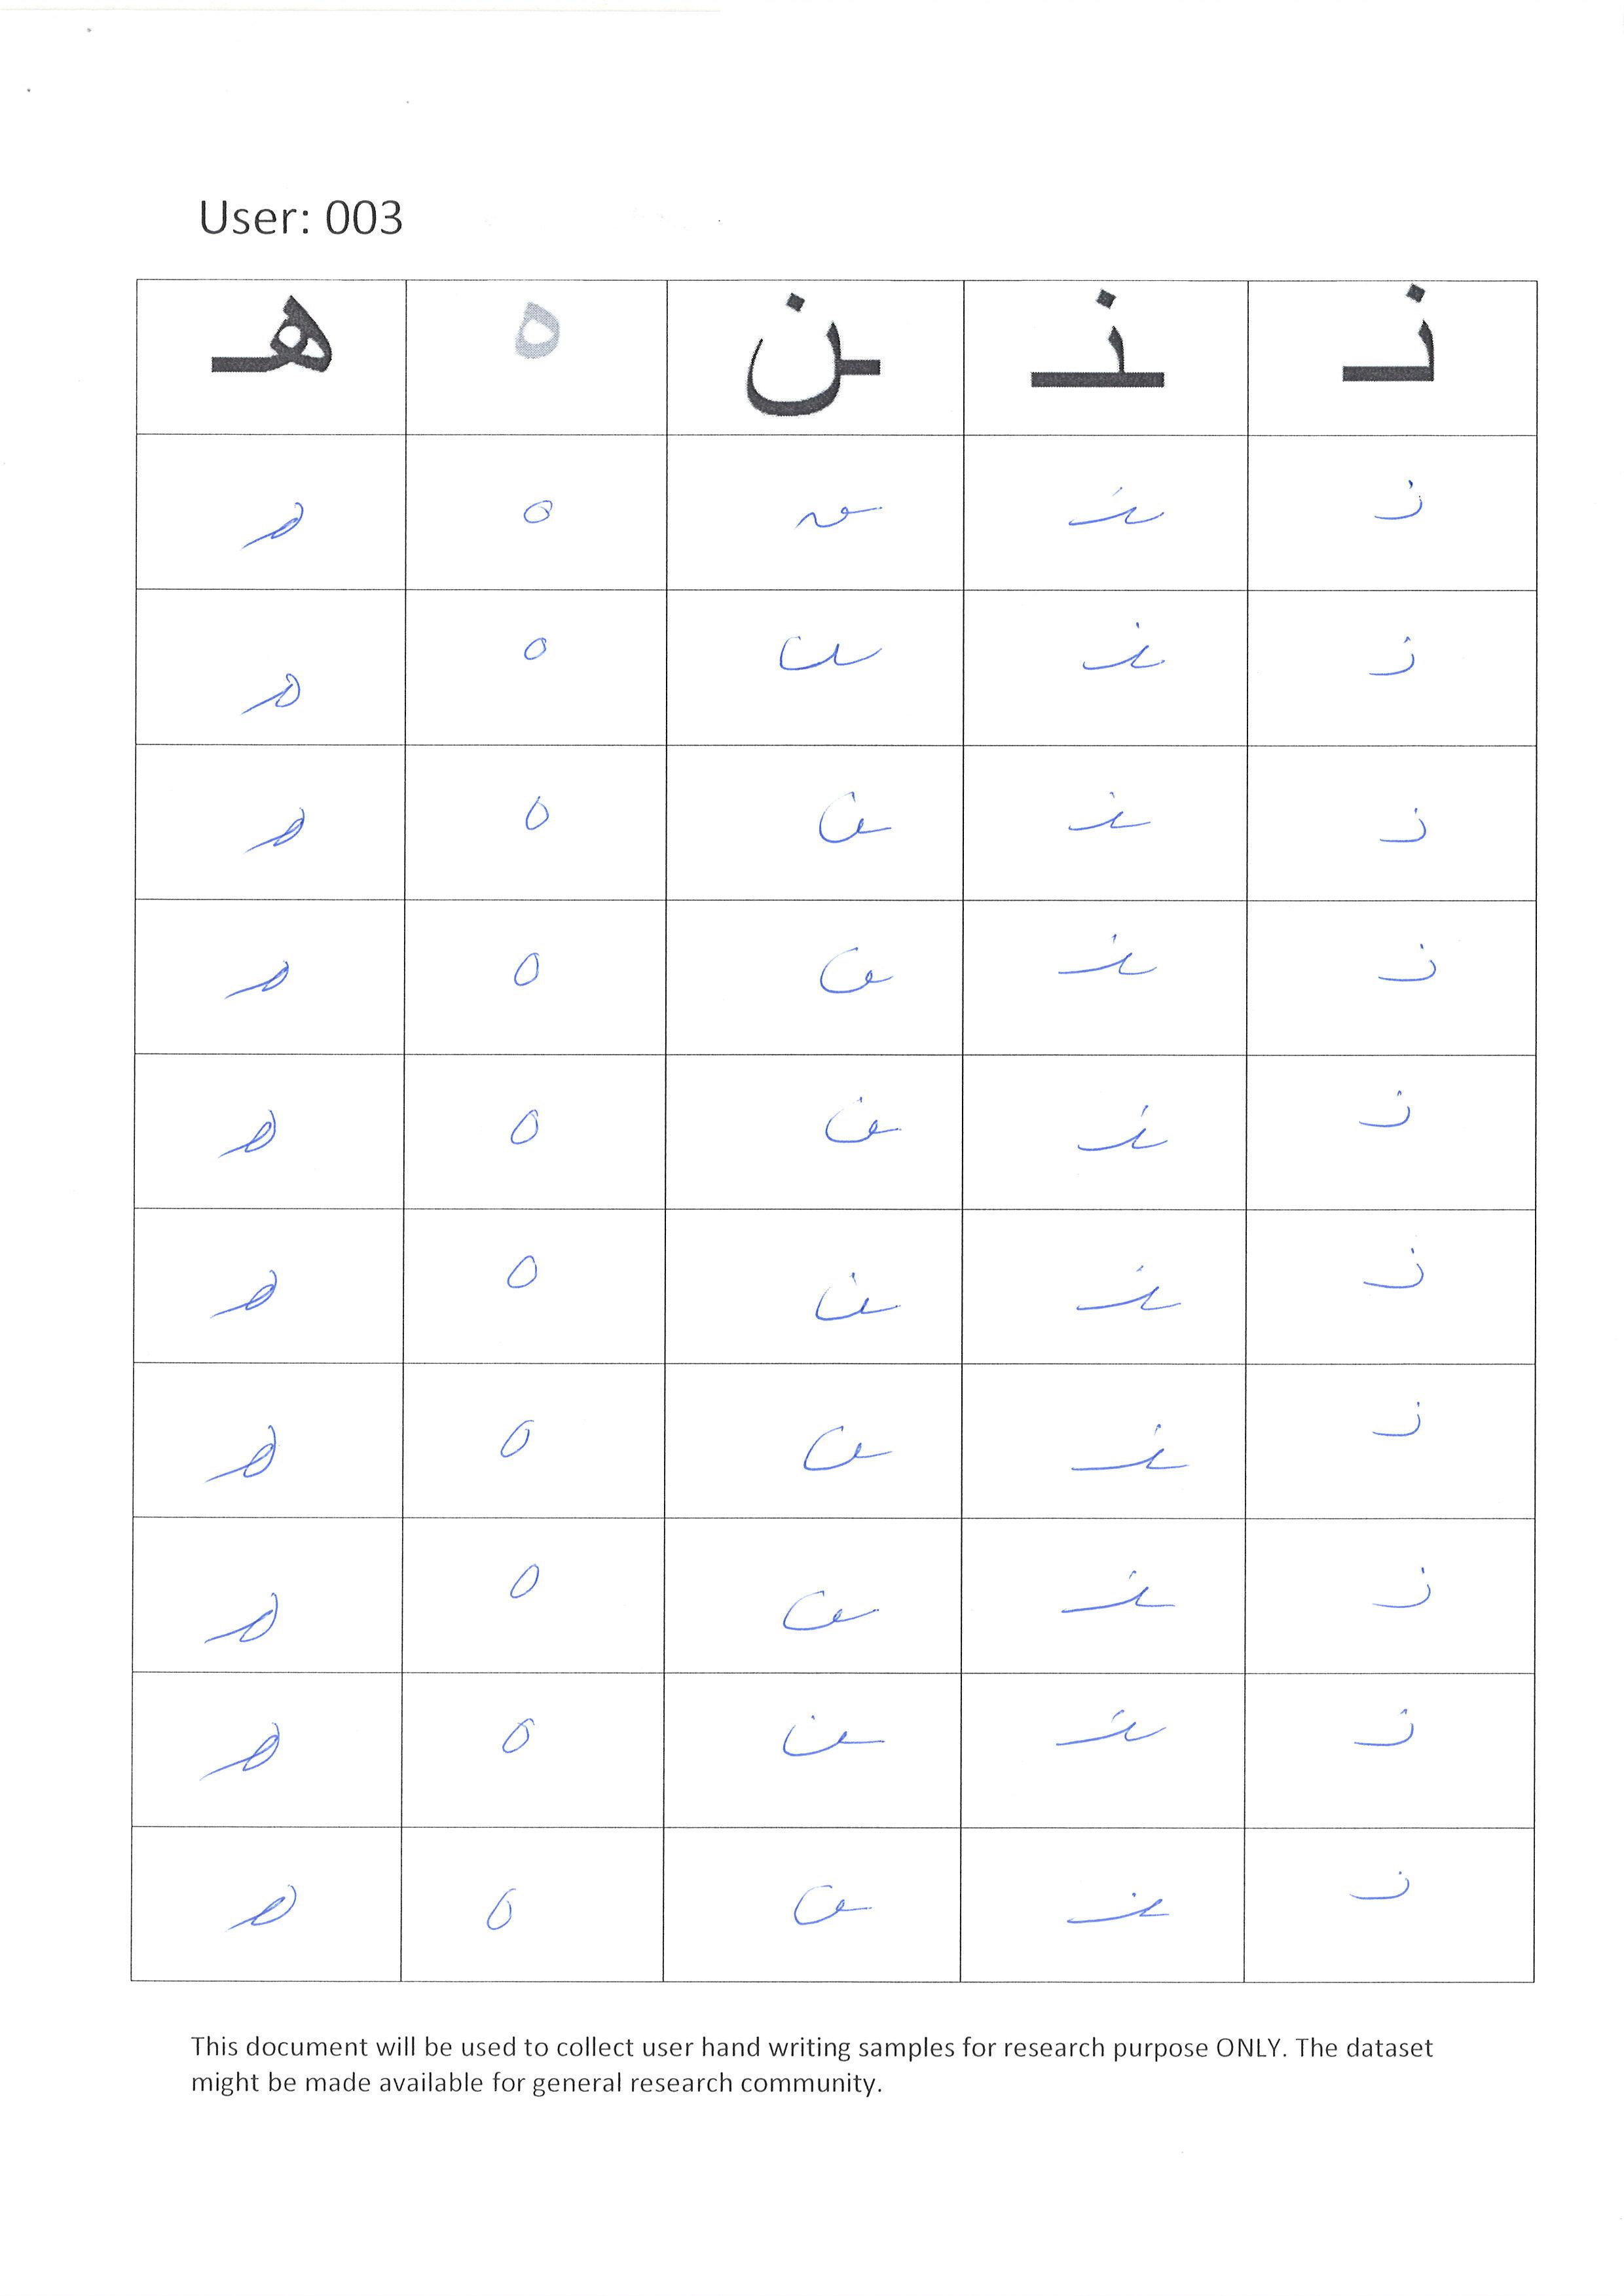 User: 003
نـ ـنـ ـن ه هـ
نـ ـنـ ـن ه هـ
نـ ـنـ ـن ه هـ
نـ ـنـ ـن ه هـ
نـ ـنـ ـن ه هـ
نـ ـنـ ـن ه هـ
نـ ـنـ ـن ه هـ
نـ ـنـ ـن ه هـ
نـ ـنـ ـن ه هـ
نـ ـنـ ـن ه هـ
نـ ـنـ ـن ه هـ
This document will be used to collect user hand writing samples for research purpose ONLY. The dataset
might be made available for general research community.